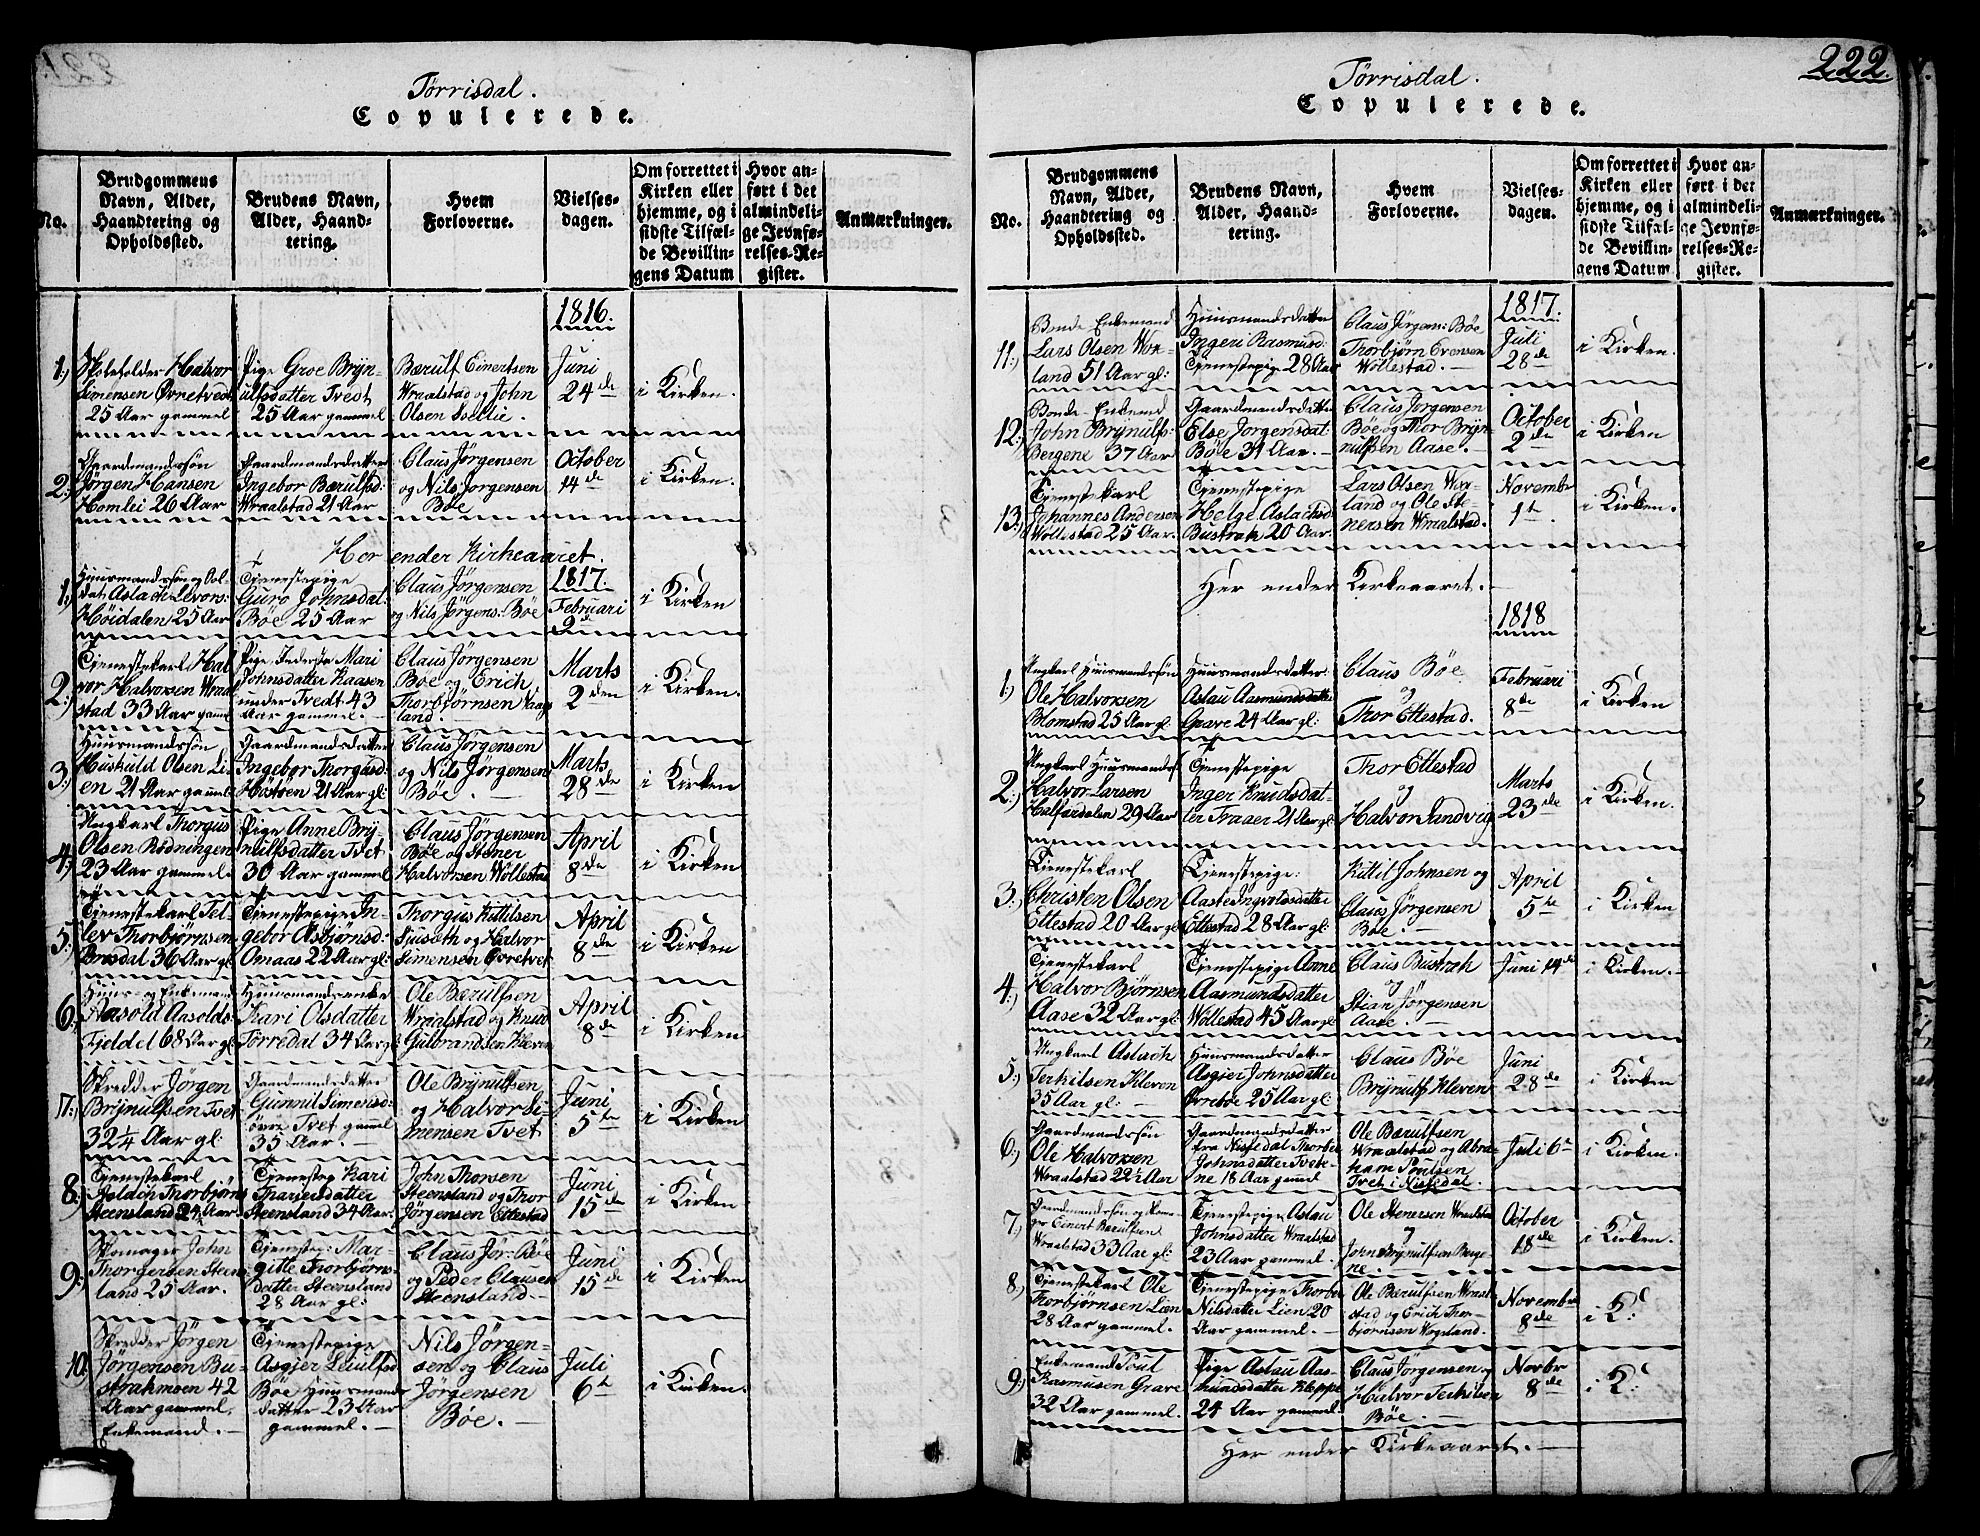 Tørrisdal.
Copulerede.
No.
Brudgommens
Navn, Alder,
Haandtering og
Opholdssted.
Brudens Navn,
Alder, Haand-
tering.
Hvem
Forloverne.
Vielses-
dagen.
Om forrettet i
Kirken eller
hjemme, og i
sidste Tilfæl-
de Bevillin-
gens Datum
Hvor an-
ført i det
almindeli-
ge Jevnfø-
relses-Re-
gister.
Anmærkninger.
1816.
1.)
Skoleholder Halvor
Simensen Øvretvedt
25 Aar gammel
Pige Groe Bryn-
ulfsdatter Tvedt
25 Aar gammel
Bærulf Einertsen
Wraalstad og John
Olsen
Juni
24de
i Kirken.
2.)
Gaardmandssøn
Jørgen Hansen
Homlei 26 Aar
Gaardmandsdatter
Ingebor Bærulfsd:
Wraalstad 21 Aar
Claus Jørgensen
og Nils Jørgensen
Bøe
October
14de
i Kirken.
Her ender Kirkeaaret.
1817.
1.)
Huusmandssøn og Sol-
dat Aslach Levors:
Høidalen 25 Aar
Tjenestepige
Guro Johnsdat:
Bøe 25 Aar
Claus Jørgensen
og Nils Jørgens: Bøe
Februari
2de
i Kirken
2.)
Tjenestekarl Hal
vor Halvorsen Wraal
stad 33 Aar gaml
Pige Inderste Mari
Johnsdatter Kaasen
under Tvedt 43
Aar gammel.
Claus Jørgensen
Bøe og Erich
Thorbjørnsen Vaags
land.
Marts
2den
i Kirken.
3.)
Huusmandssøn
Huskuld Olsen Li-
en 21 Aar gammel
Gaardmandsdatter
Ingebor Thorgusd:
21 Aar gl:
Claus Jørgensen
og Nils Jørgensen
Bøe.
Marts
28de
i Kirken
4.)
Ungkarl Thorgus
Olsen Rødningen
23 Aar gammel
Pige Anne Bry-
nulfsdatter Tvet
30 Aar gammel
Claus Jørgensen
Bøe og Stener
Halvorsen Wøllestad
April
8de
i Kirken
5.)
Tjenestekarl Tel-
lev Thorbjørnsen
Brusdal 36 Aar gl:
Tjenestepige In-
gebor Asbjørnsd:
Omaas 22 Aar gl:
Thorgus Kittilsen
Sjuseth og Halvor
Simensen Øvretvet
April
8de
i Kirken
6.)
Huus- og Enkemand
Aasold Aasolds
Fjeldet 68 Aar gl:
Huusmandsenke
Kari Olsdatter
Tørredal 34 Aar gl
Ole Bærulfsen
Wraalstad og Knud
Gulbrandsen Kleven
April
8de
i Kirken
7.)
Skredder Jørgen
Brynulfsen Tvet
32 1/4 Aar gl:
Gaardmandsdatter
Gunnil Simensd:
øvre Tvet gammel
35 Aar.
Ole Brynulfsen
og Halvor Si-
mensen Tvet
Juni
5te
i Kirken
8.)
Tjenestekarl
Thorbjørns
Steensland 24 Aar
Tjenestep Kari
Tharjersdatter
Steensland 34 Aar
John Thorsen
Steensland og Thor
Jørgensen Ettestad
Juni
15de
i Kirken
9.)
Skomager John
Thorgersen Steens
land 25 Aar.
Tjenestep: Mar-
gitte Thorbjørns-
datter Steensland
28 Aar gl:
Claus Jør: Bøe
og Peder Clausen
Steensland
Juni
15de
i Kirken
10
Skredder Jørgen
Jørgensen Bu-
strakmoen 42
Aar gammel,
Enkemand.
Tjenestepige
Asgjer Leiulfsd
Bøe Huusmands
datter 23 Aar
gammel.
Nils Jørgen-
sen og Claus
Jørgensen
Bøe.
Juli
6te
i Kirken.
222.
Tørrisdal.
Copulerede.
No.
Brudgommens
Navn, Alder,
Haandtering og
Opholdssted.
Brudens Navn,
Alder, Haand-
tering.
Hvem
Forloverne.
Vielses-
dagen.
Om forrettet i
Kirken eller
hjemme, og i
sidste Tilfæl-
de Bevillin-
gens Datum
Hvor an-
ført i det
almindeli-
ge Jevnfø-
relses-Re-
gister.
Anmærkninger.
1817.
11.)
Bonde-Enkemand
Lars Olsen Wox-
land 51 Aar gl:
Huusmandsdatter
Ingeri Rasmusd:
Tjenestepige 28 Aar
Claus Jørgens: Bøe
Thorbjørn Evensen
Wøllestad.
Juli
28de
i Kirken.
12.)
Bonde-Enkemd
John Brynulfs:
Bergene 37 Aar
Gaardmandsdatter
Else Jørgensdat:
Bøe 31 Aar.
Claus Jørgensen
Bøe og Thor Bryn-
nulfsen Aase.
October
2de
i Kirken
13.)
Tjenestekarl
Johannes Andersen
Wøllestad 25 Aar.
Tjenestepige
Helge Aslachsd:
Bustrak 20 Aar.
Lars Olsen Wox-
land og Ole Ste-
nersen Wraalstad.
Novembr
1te
i Kirken.
Her ender Kirkeaaret.
1818
1.)
Ungkarl Huusmandssøn
Ole Halvorsen
Blomstad 25 Aar gl
Huusmandsdatter:
Aslau Aasmundsdatter
Grave 24 Aar gl:
Claus Bøe
og
Thor Ettestad.
Februari
8de
i Kirken
2.)
Ungkarl Huusmandss
Halvor Larsen
Halfardalen 29 Aar
Tjenestepige
Inger Knudsdat-
ter Traaer 21 Aar gl:
Thor Ettestad
og
Halvor Sandvig
Marts
23de
i Kirken.
3.)
Tjenestekarl
Christen Olsen
Ettestad 20 Aar gl
Tjenestepige:
Aaste Ingvolsdatter
Ettestad 28 Aar gl:
Kittil Johnsen og
Claus Jørgensen
Bøe.
April
5te
i Kirken
4.)
Tjenestekarl
Halvor Bjørnsen
Aase 32 Aar gl:
Tjenestepige Anne
Aasmundsdatter
Wøllestad 45 Aar gl
Claus Bustrak
og
Stian Jørgensen
Aase.
Juni 14de
i Kirken.
5.)
Ungkarl Aslach
Terkilsen Kleven
35 Aar gl:
Huusmandsdatter
Asgjer Johnsdatter
Øvrebøe 25 Aar gl:
Claus Bøe
Brynulf Kleven
Juni
28de
i Kirken
6.)
Gaardmandssøn
Ole Halvorsen
Wraalstad 22½ Aar
Gaardmandsdatter
fra Nissedal Thorber
Johnsdatter Tvete-
ne 18 Aar gammel
Ole Bærulfsen
Wraalstad og Abra-
ham Poulsen
Tvet i Nissedal.
Juli 6te
i Kirken.
7.)
Gaardmandssøn og
Einert Bærulfsen
Wraalstad 33 Aar gl:
Tjenestepige Aslau
Johnsdatter Wraalstad
23 Aar gammel.
Ole Stenersen Wraalstad
og
John Brynulfsen Berge-
ne.
October
18de
i Kirken.
8.)
Tjenestekarl Ole
Thorbjørnsen Lien
28 Aar gammel.
Tjenestepige Thorber
Nilsdatter Lien 20
Aar gammel.
Ole Bærulfsen Wraal-
stad og Erich Thor-
bjørnsen Vogsland.
Novembr
8de
i K:
9.)
Enkemand Poul
Rasmusen Grave
32 Aar gammel.
Pige Aslau Aas-
mundsdatter Kleppe
24 Aar gammel.
Claus Jørgensen og
Halvor Terkilsen
Bøe.
Novbr
8de
i K:
Her ender Kirkeaaret.